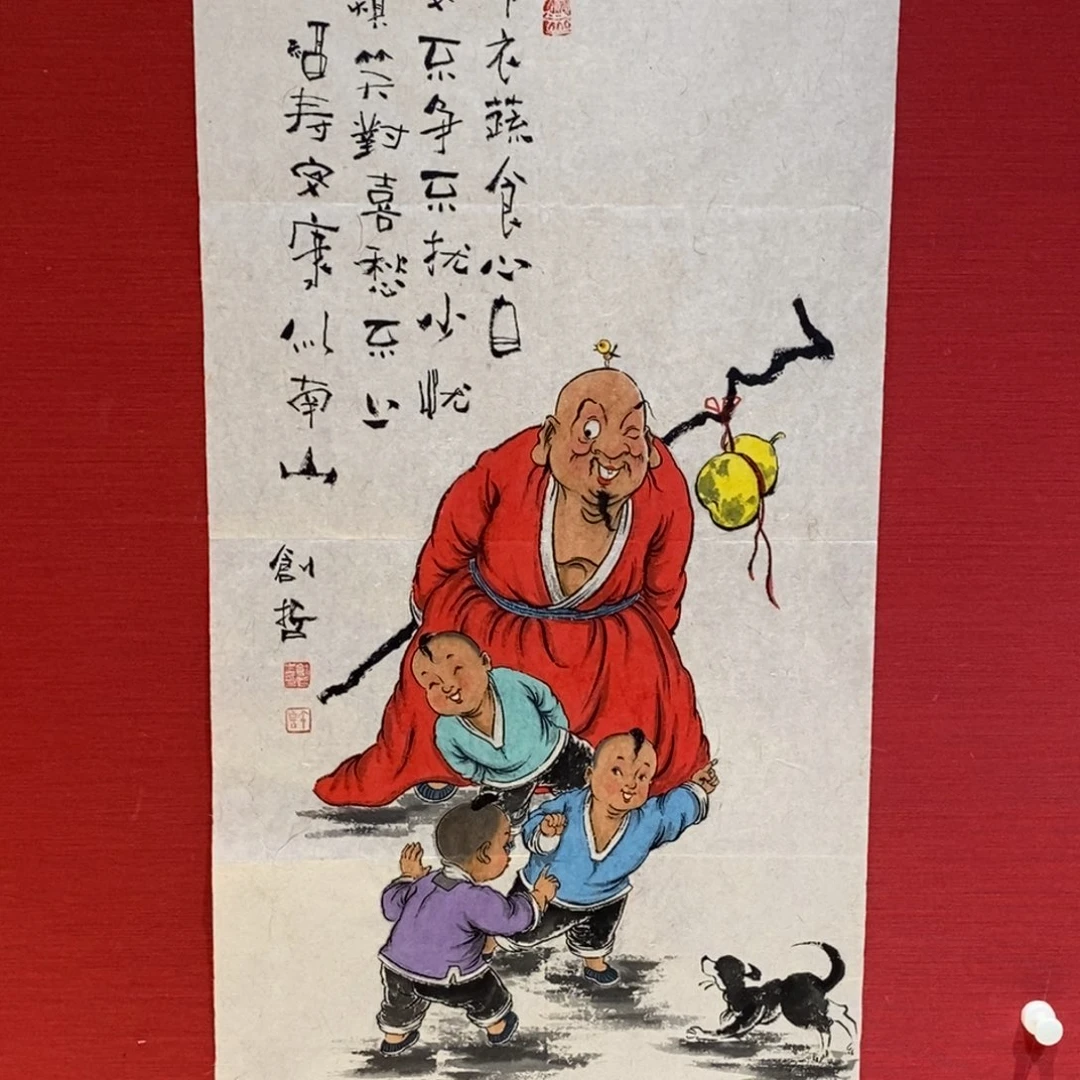 衣蔬食心自
不争不扰少忧
烦笑對喜愁不上
福寿安康似南山
創哲